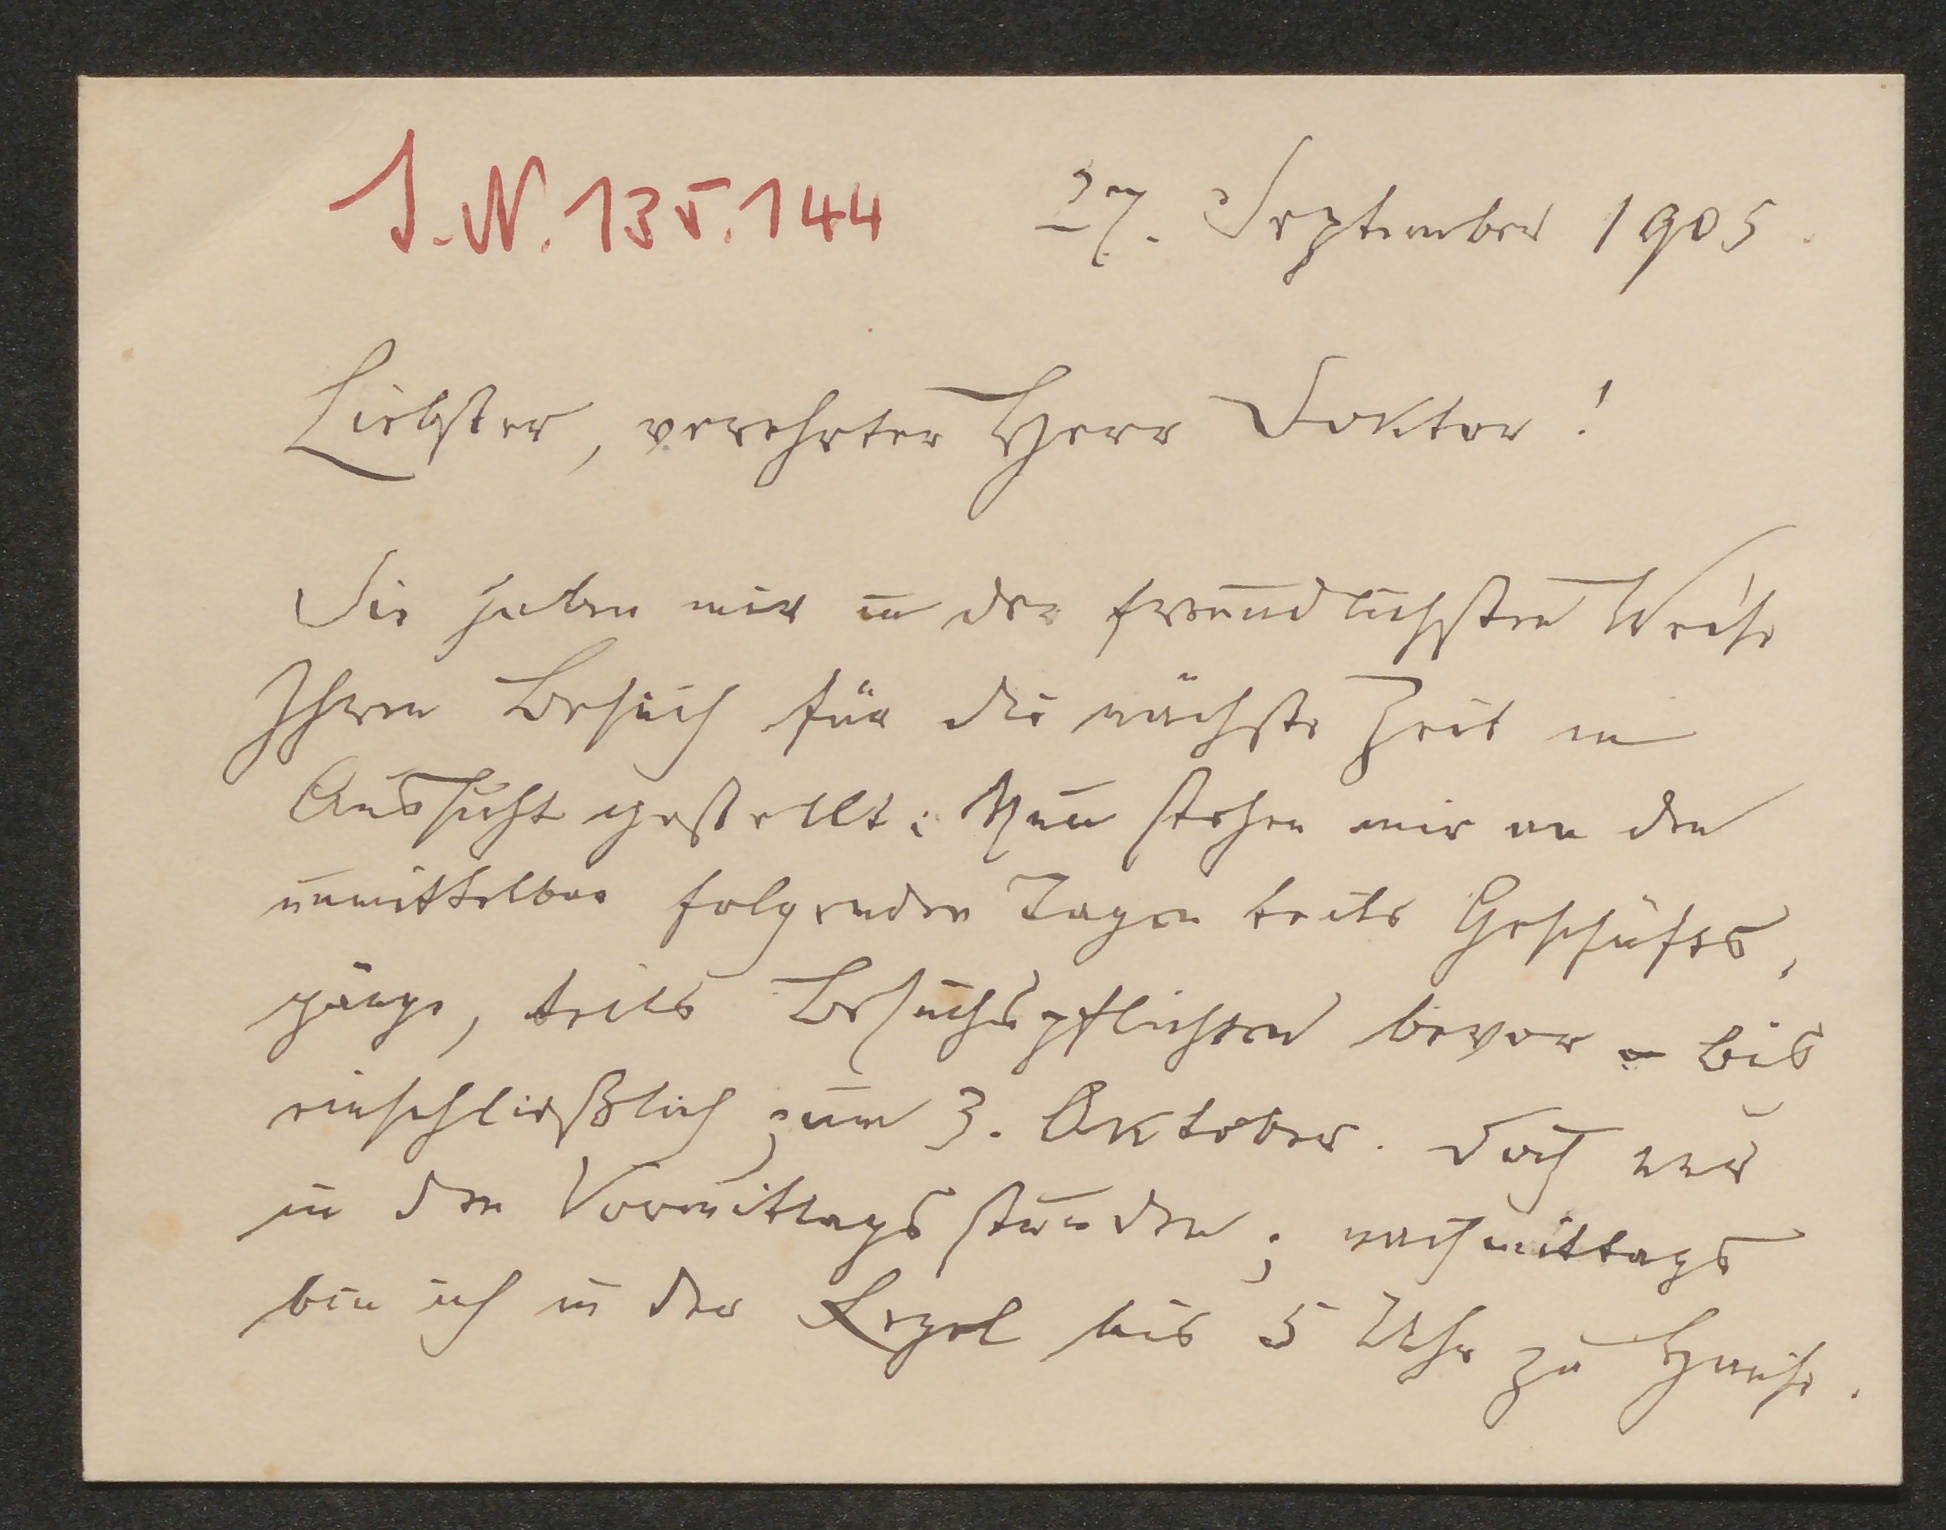 I. N. 135.144
27. September 1905.
Liebster, verehrter Herr Doktor!
Sie haben mir in der freundlichsten Weise
Ihren Besuch für die nächste Zeit in
Aussicht gestellt. Nun stehen mir an den
unmittelbar folgenden Tagen teils Geschäfts-
gänge, teils Besuchspflichten bevor – bis
einschließlich zum 3. Oktober. Doch nur
in den Vormittagsstunden; nachmittags
bin ich in der Regel bis 5 Uhr zu Hause.